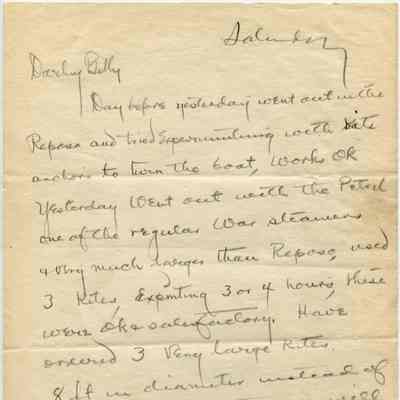 Saturday
Darling Billy
Day before yesterday went out in the
Repose and tried experimenting with kite
anchors to turn the boat, works OK
Yesterday Went out with the Petrel
one of the regular War steamers
& very much larger than Repose, used
3 Kites, Expmting 3 or 4 hours, these
were OK & satisfactory. Have
ordered 3 Very large Kites.
8 ft in diameter instead of